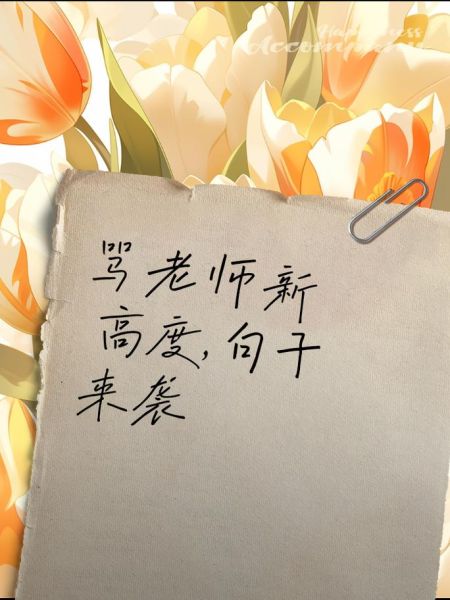 Happiness
Accompany
骂老师新
高度,句子
来袭